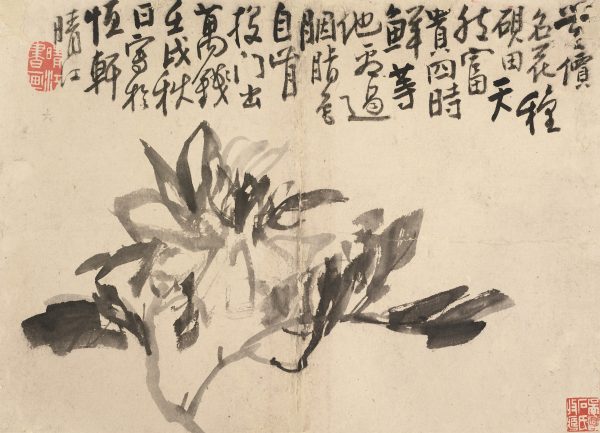 無價
名花種
硯田天
然富
貴四時
鮮等
他看過
胭脂色
自肯
投門出
萬錢
壬戌秋
日寫於
恒軒
晴江